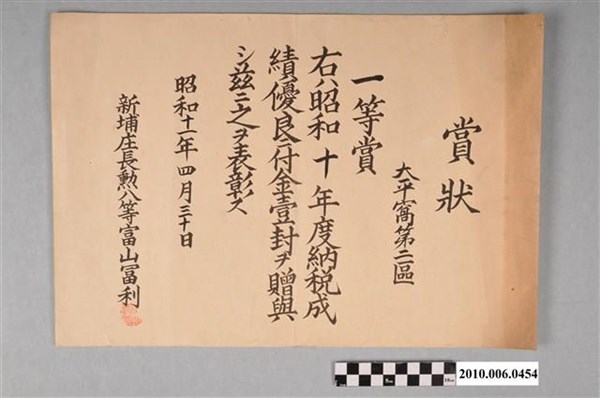 賞狀
太平窩第二區
一等賞
右ハ昭和十年度納税成
績優良ニ付金壹封ヲ贈與
シ茲ニ之ヲ表彰ス
昭和十一年四月三十日
新埔庄長勲八等富山冨利
2010.006.0454